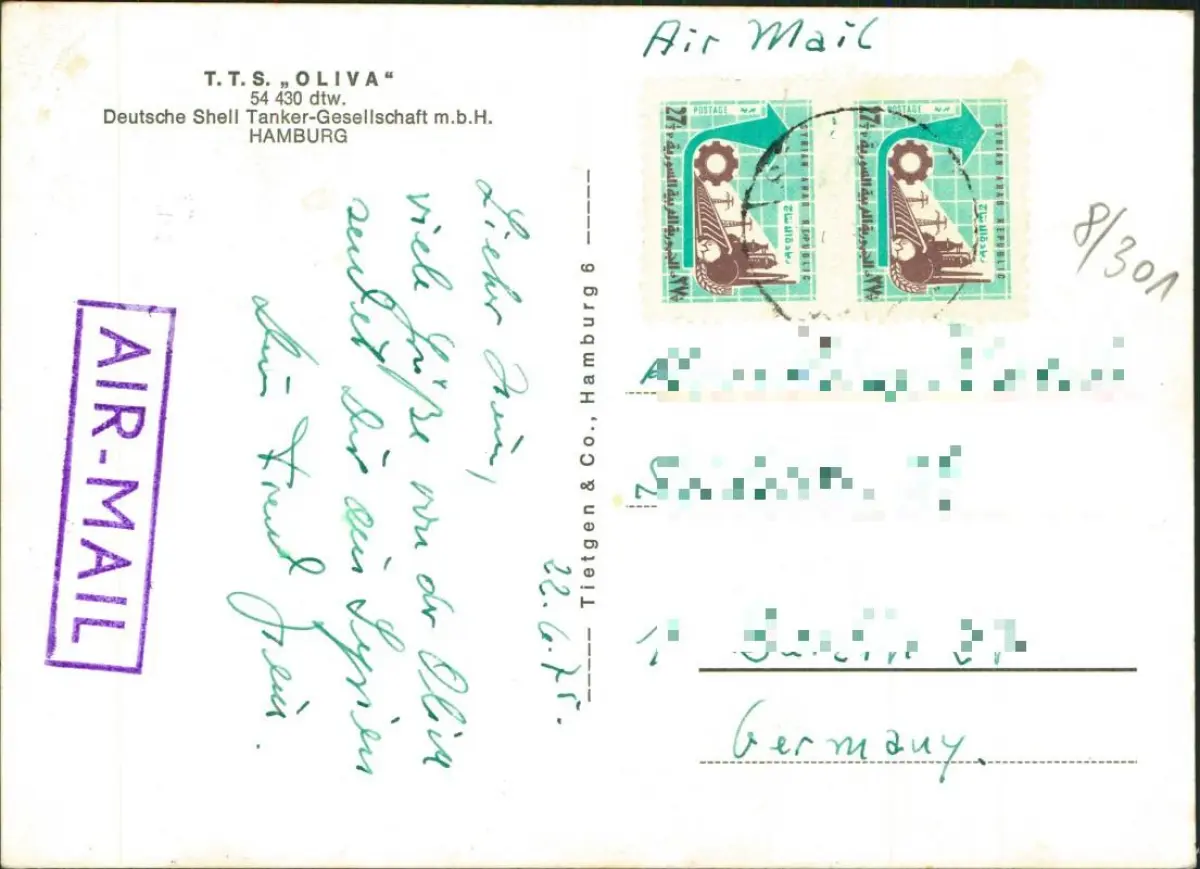 T.T.S. „OLIVA“
54 430 dtw.
Deutsche Shell Tanker-Gesellschaft m.b.H.
HAMBURG
22.6.75.
Lieber
viele Grüße von der Oliva
sendet Dir aus Syrien
Dein Freund
AIR-MAIL
Tietgen & Co., Hamburg 6
Air Mail
POSTAGE
SYRIAN ARAB REPUBLIC
الجمهورية العربية السورية
27½
POSTAGE
SYRIAN ARAB REPUBLIC
الجمهورية العربية السورية
27½
8/301
Germany.